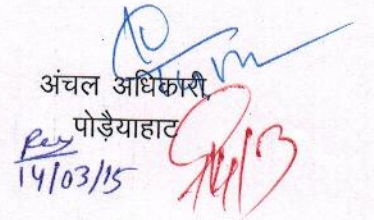 अंचल अधिकारी,
पोड़ैयाहाट
14/03/15
14/3